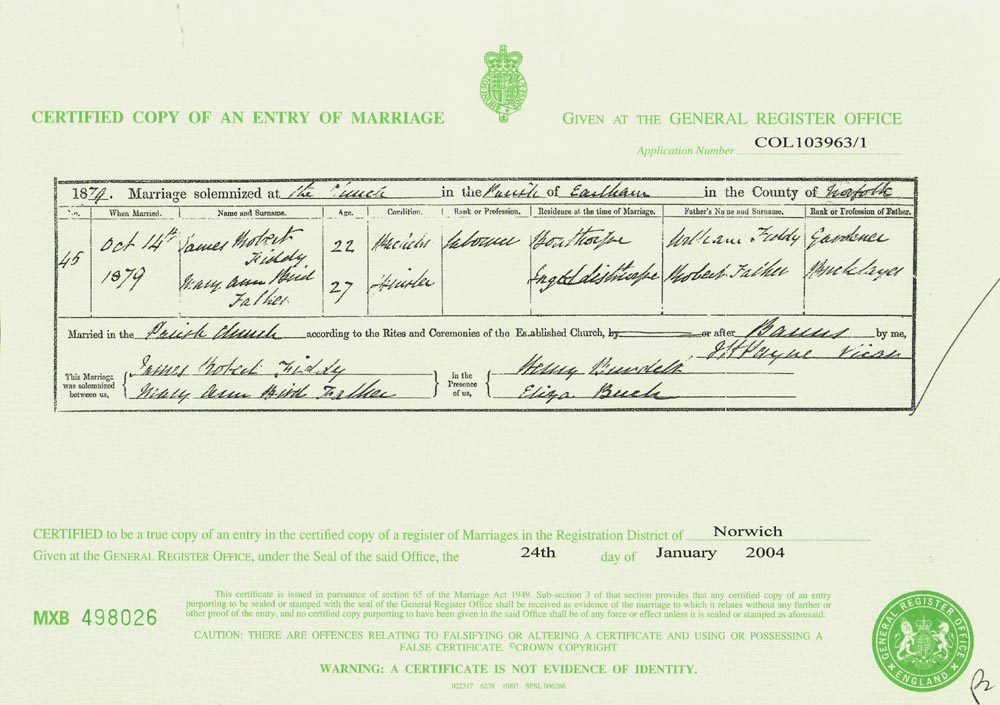 CERTIFIED COPY OF AN ENTRY OF MARRIAGE
GIVEN AT THE GENERAL REGISTER OFFICE
Application Number COL103963/1
1879. Marriage solemnized at the Church in the Parish of Earlham in the County of Norfolk
No. When Married. Name and Surname. Age. Condition. Rank or Profession. Residence at the time of Marriage. Father's Name and Surname. Rank or Profession of Father.
45 Oct 14th 1879 James Robert Fiddy 22 Bachelor Labourer Bowthorpe William Fiddy Gardener
Mary Ann Bird Father 27 Spinster Robert Father Bricklayer
Married in the Parish Church according to the Rites and Ceremonies of the Established Church, by or after Banns by me,
J H Payne Vicar
This Marriage was solemnized between us, James Robert Fiddy
Mary Ann Bird Father
in the Presence of us, Henry
Eliza
CERTIFIED to be a true copy of an entry in the certified copy of a register of Marriages in the Registration District of Norwich
Given at the GENERAL REGISTER OFFICE, under the Seal of the said Office, the 24th day of January 2004
MXB 498026
This certificate is issued in pursuance of section 65 of the Marriage Act 1949. Sub-section 3 of that section provides that any certified copy of an entry
purporting to be sealed or stamped with the seal of the General Register Office shall be received as evidence of the marriage to which it relates without any further or
other proof of the entry, and no certified copy purporting to have been given in the said Office shall be of any force or effect unless it is sealed or stamped as aforesaid.
CAUTION: THERE ARE OFFENCES RELATING TO FALSIFYING OR ALTERING A CERTIFICATE AND USING OR POSSESSING A
FALSE CERTIFICATE. ©CROWN COPYRIGHT
WARNING: A CERTIFICATE IS NOT EVIDENCE OF IDENTITY.
022317 6276 10/03 SPSL 006286
GENERAL REGISTER OFFICE
ENGLAND